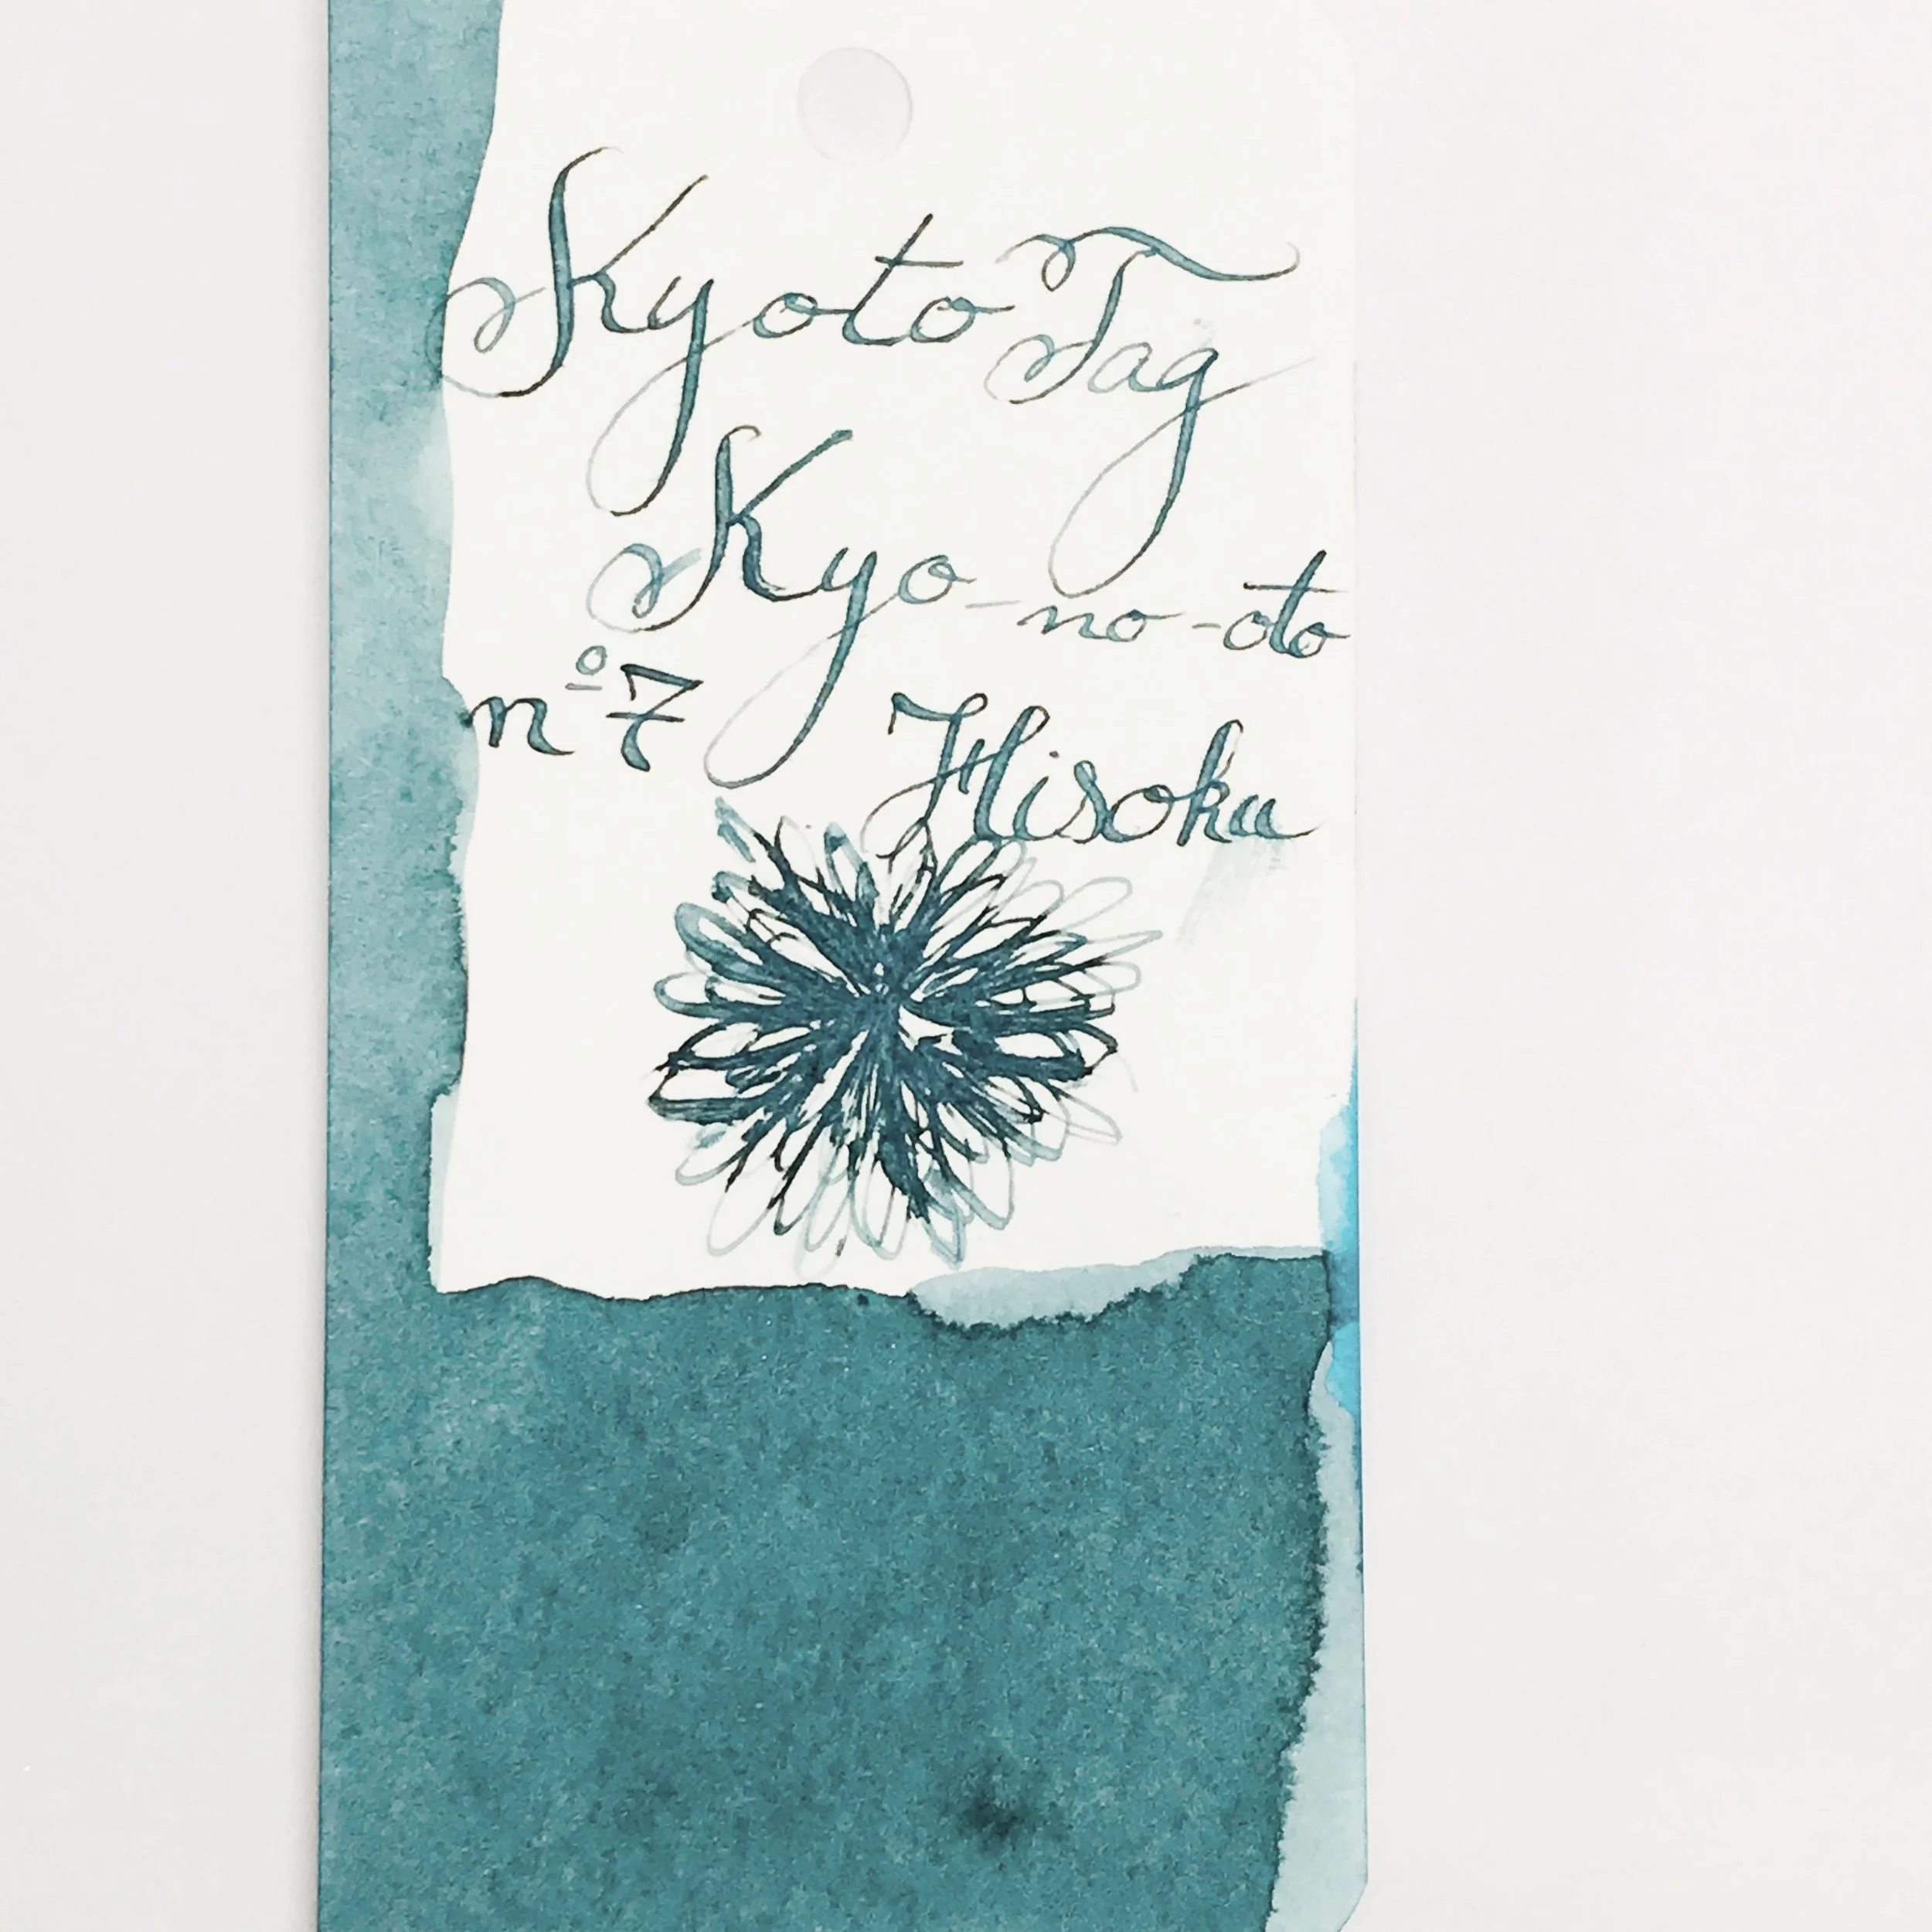 Kyoto Tag
Kyo-no-oto
nº7 Hisoku